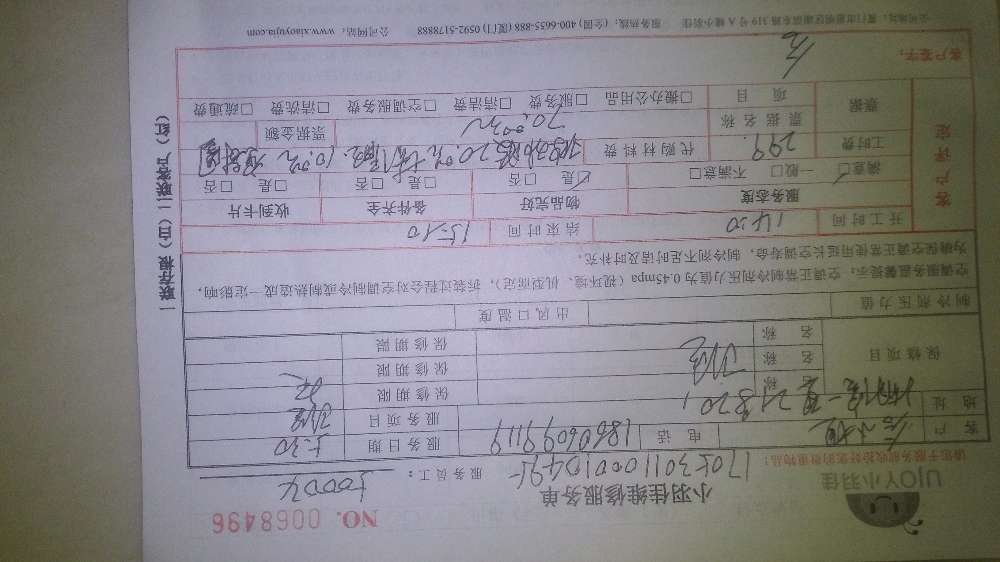 UJOY小羽佳
小羽佳维修服务单
NO. 0068496
170530110001049
服务员工：
请您于服务前收拾好您的贵重物品！
客户
电话 18606099119
服务日期 5.30
地址
服务项目
保修项目
名称
保修期限
名称
保修期限
名称
保修期限
制冷剂压力值
出风口温度
空调服务温馨提示：空调正常制冷剂压力值为0.45mpa（视环境、机型而定），拆装过程会对空调制冷或制热造成一定影响，
为确保空调正常使用延长空调寿命，制冷剂不足时请及时补充。
开工时间 14:30
结束时间 15:10
客户评定
服务态度
物品完好
备件齐全
收到卡片
满意 一般 不满意
是 否
是 否
是 否
工时费 299.
代购材料费
票据
票据名称
票据金额
项目
搬办公用品 服务费 清洁费 空调服务费 清洗费 疏通费
客户签字：
公司地址：厦门市思明区湖滨东路319号A幢小羽佳 服务热线：（全国）400-6655-888（厦门）0592-5178888 公司网站：www.xiaoyujia.com
一联存根（白）二联客户（红）